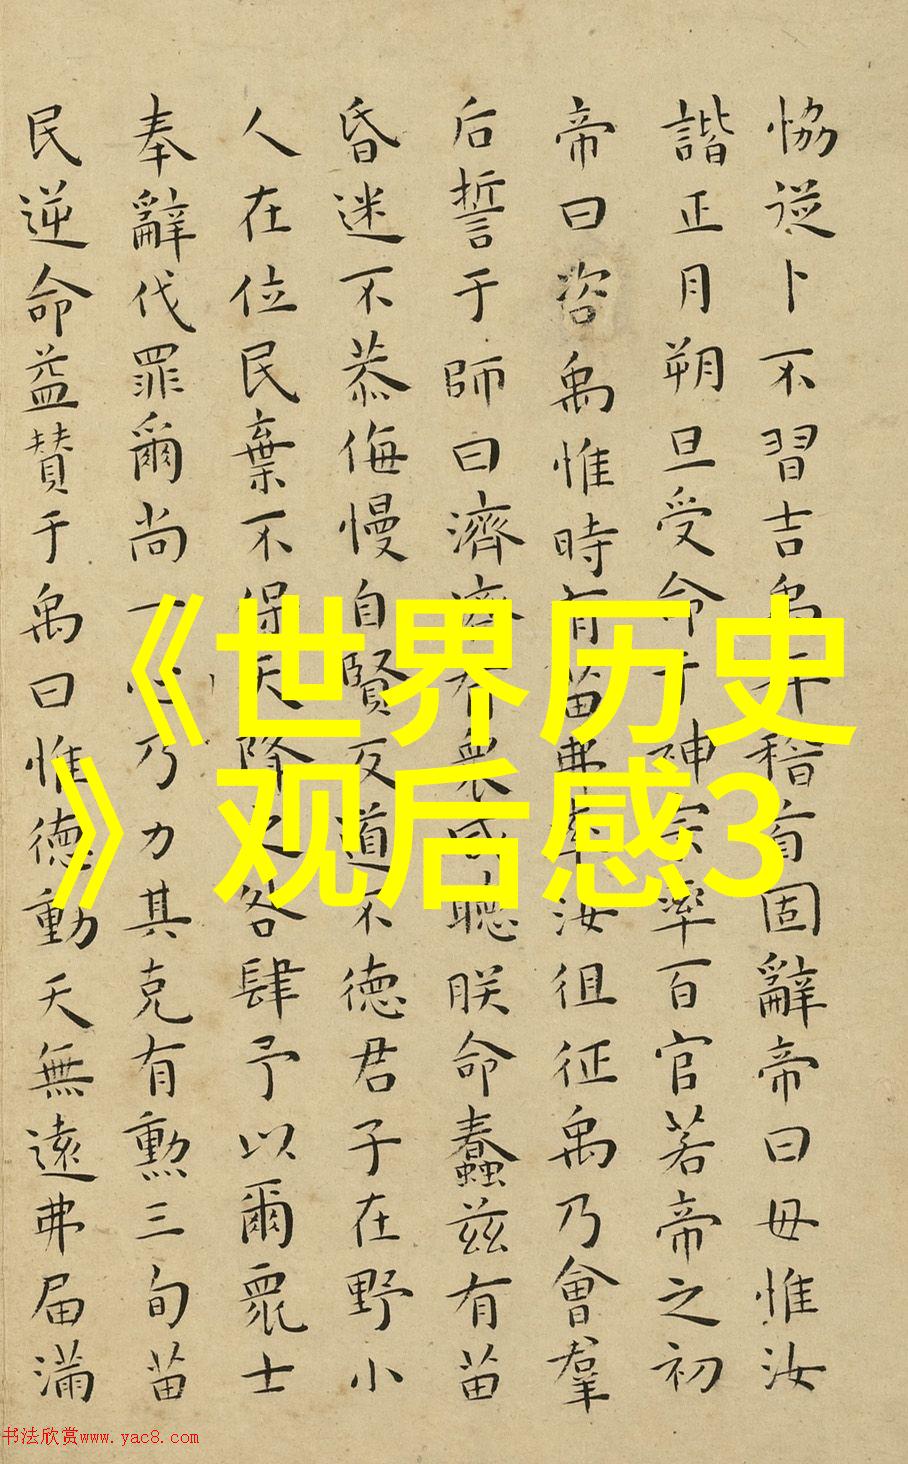 恊從卜不習吉禹拜稽首固辭帝曰毋惟汝
諧正月朔旦受命于神宗率百官若帝之初
帝曰咨禹惟時有苗弗率汝徂征禹乃會羣
后誓于師曰濟濟有衆咸聽朕命蠢茲有苗
昏迷不恭侮慢自賢反道不徳君子在野小
人在位民棄不保天降之咎肆予以爾衆士
奉辭伐罪爾尚一心乃力其克有勲三旬苗
民逆命益贊于禹曰惟徳動天無遠弗届滿
《世界历史
》观后感3
书法欣赏www.yac8.com